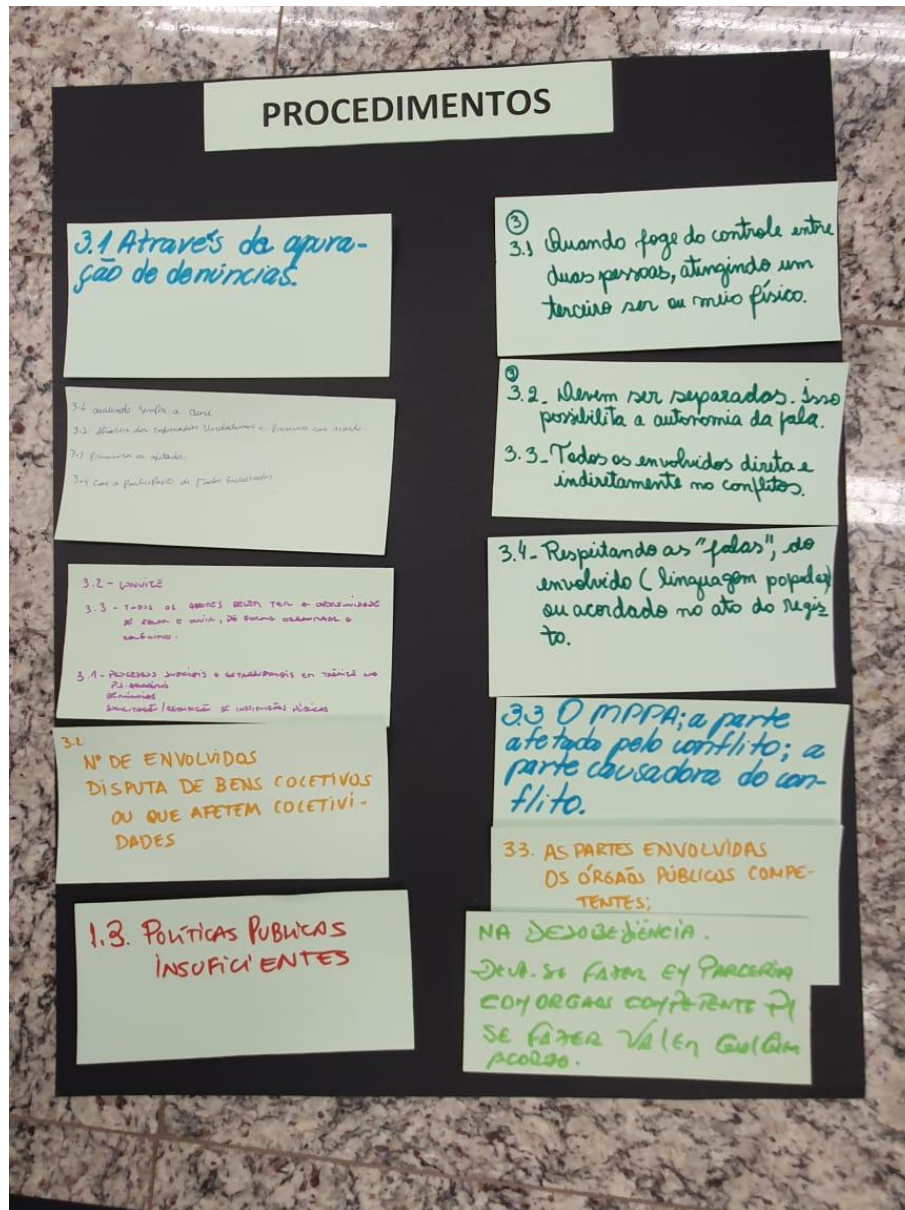 PROCEDIMENTOS
3.1 Através da apura-
ção de denúncias.
3.2 ouvindo sempre a base
3.2 Através das informações verdadeiras e
3.3 Primeiro os afetados.
3.4 Com a participação de todos
3.2 - CONVITE
3.3 - TODOS OS DEVEM TER A OPORTUNIDADE
DE FALAR E OUVIR, DE FORMA ORGANIZADA E
3.1 - PROCESSOS JUDICIAIS E EXTRAJUDICIAIS EM TRÂMITE NO
DENÚNCIAS
SOLICITAÇÃO / DE INSTITUIÇÕES PÚBLICAS
3.2.
Nº DE ENVOLVIDOS
DISPUTA DE BENS COLETIVOS
OU QUE AFETEM COLETIVI-
DADES
1.3. POLÍTICAS PUBLICAS
INSUFICIENTES
③
3.1 Quando foge do controle entre
duas pessoas, atingindo um
terceiro ser ou meio físico.
③
3.2_ Devem ser separadas. Isso
possibilita a autonomia da fala.
3.3_ Todos os envolvidos direta e
indiretamente no conflitos.
3.4_ Respeitando as "falas", do
envolvido (linguagem popular)
ou acordado no ato do regis-
to.
3.3 O MPPA; a parte
afetada pelo conflito; a
parte causadora do con-
flito.
33. AS PARTES ENVOLVIDAS
OS ÓRGAÕS PÚBLICOS COMPE-
TENTES;
NA DESOBEDIÊNCIA.
DEVE-SE FAZER EM PARCERIA
COM ORGAOS COMPETENTE P/
SE FAZER VALER QUALQUER
ACORDO.